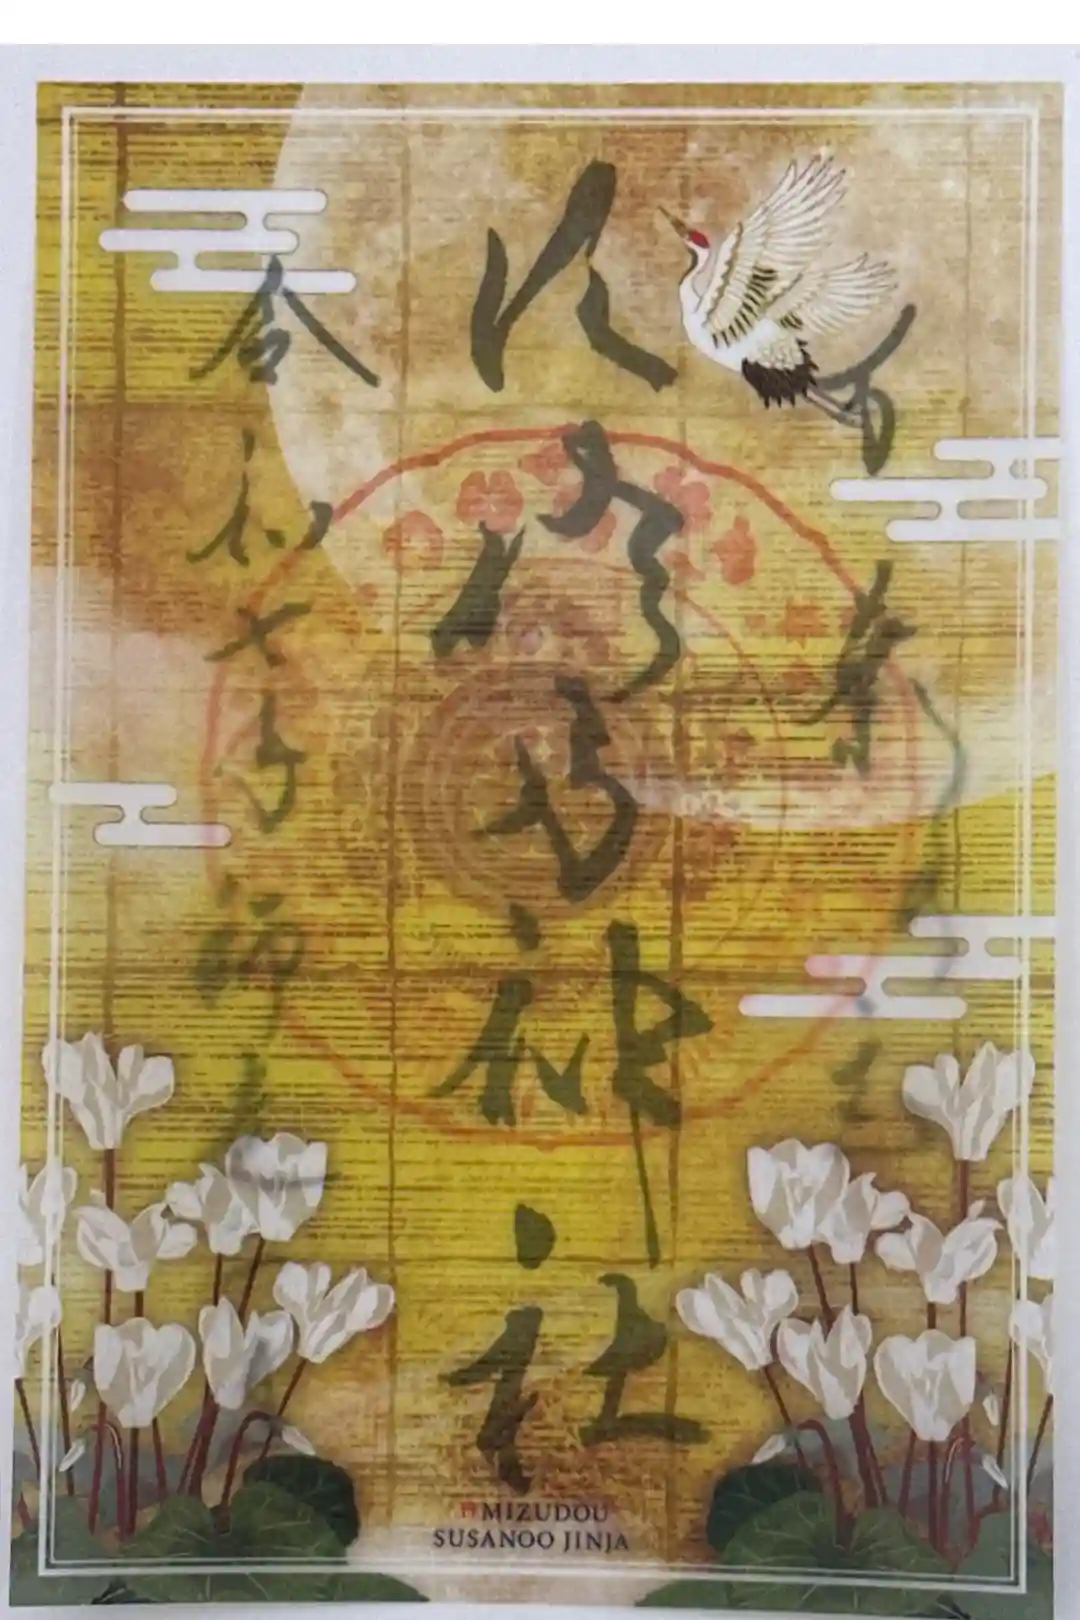 奉拝
須佐男神社
令和年師走
MIZUDOU
SUSANOO JINJA